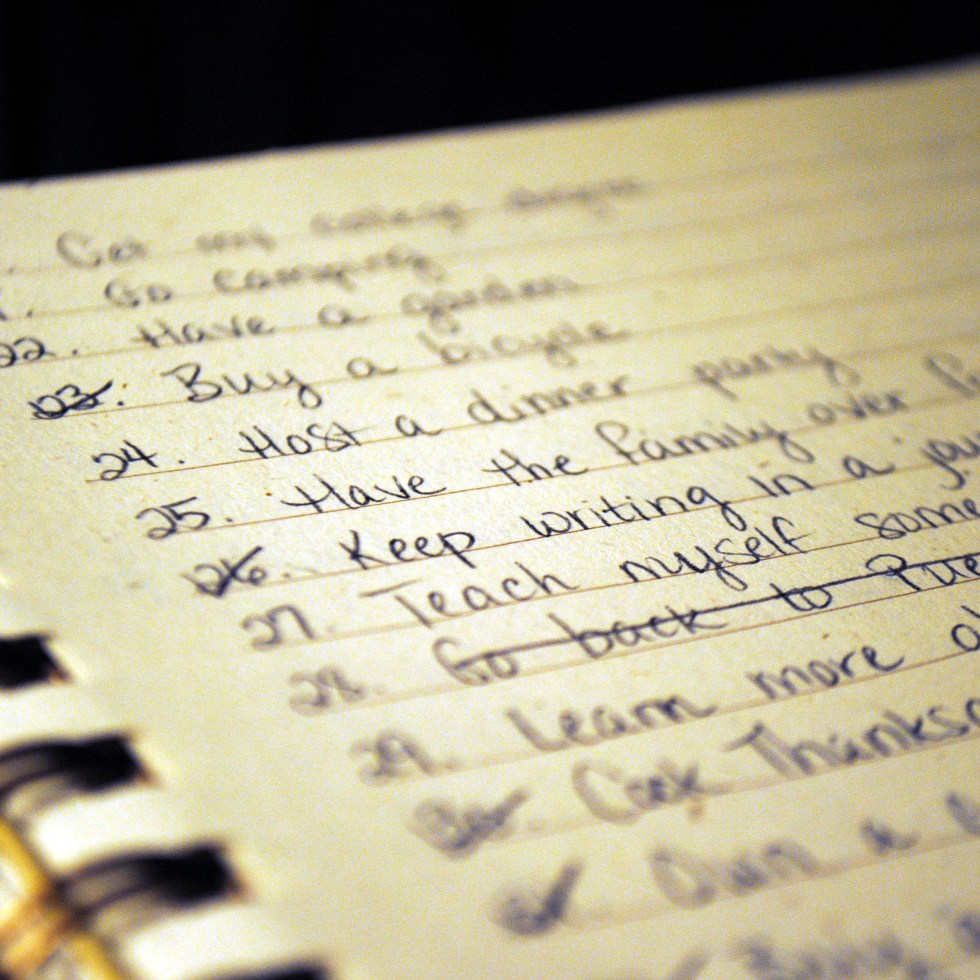 Get my college
Go camping
22. Have a garden
23. Buy a bicycle
24. Host a dinner party
25. Have the family over
26. Keep writing in a
27. Teach myself
28. Go back to
29. Learn more
30. Cook
31. Own a